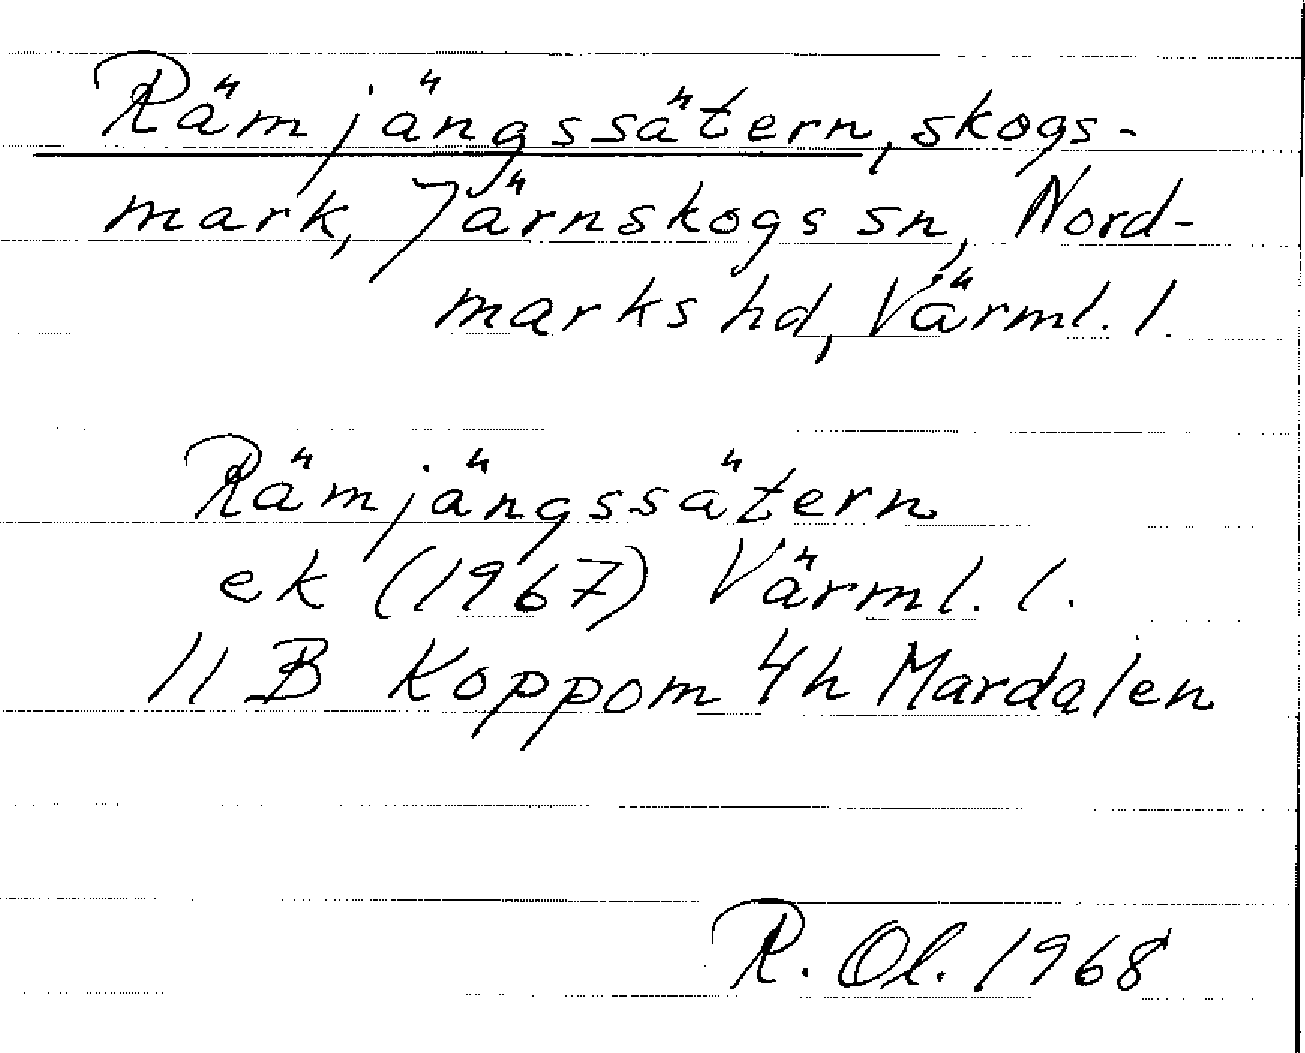 Rämjängssätern, skogs-
mark, Järnskogs sn, Nord-
marks hd, Värml. l.
Rämjängssätern
ek (1967) Värml. l.
11 B Koppom 4h Mardalen
R. Ol. 1968